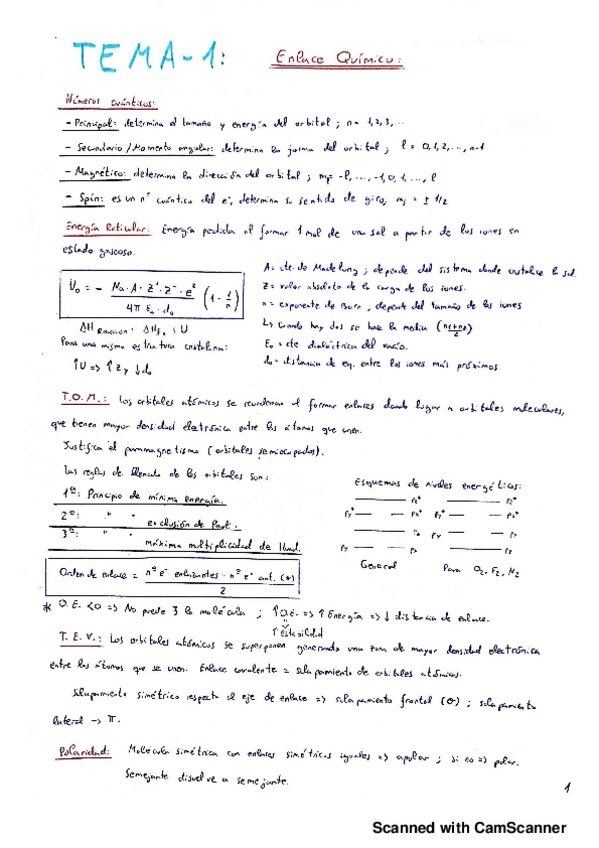 TEMA-1:
Enlace Químico:
Números cuánticos:
- Principal: determina el tamaño y energía del orbital ; n = 1,2,3,...
- Secundario / Momento angular: determina la forma del orbital ; l = 0,1,2,...,n-1
- Magnético: determina la dirección del orbital ; ml = -l,...,-1,0,1,...,l
- Spin: es un nº cuántico del e-, determina su sentido de giro, ms = ± 1/2
Energía Reticular: Energía perdida al formar 1 mol de una sal a partir de los iones en
estado gaseoso.
U₀ = - Na·A·Z⁺·Z⁻·e² / 4π E₀·d₀ (1 - 1/n)
A = cte. de Madelung ; depende del sistema donde cristalice la sal.
Z = valor absoluto de la carga de los iones.
n = exponente de Born, depende del tamaño de los iones
↳ Cuando hay dos se hace la media (n+n/2)
E₀ = cte dieléctrica del vacío.
d₀ = distancia de eq. entre los iones más próximos.
Para una misma estructura cristalina:
↑U => ↑Z y ↓d₀
T.O.M.: Los orbitales atómicos se reordenan al formar enlaces dando lugar a orbitales moleculares,
que tienen mayor densidad electrónica entre los átomos que unen.
Justifica el paramagnetismo (orbitales semiocupados).
Las reglas de llenado de los orbitales son:
1º: Principio de mínima energía.
2º: " " exclusión de Pauli.
3º: " " máxima multiplicidad de Hund.
Esquemas de niveles energéticos:
General
Para O₂, F₂, N₂
Orden de enlace = nº e- enlazantes - nº e- ant. (*) / 2
* O.E. <0 => No puede ∃ la molécula ; ↑O.E. => ↑ Energía => ↓ distancia de enlace.
↑ estabilidad
T.E.V.: Los orbitales atómicos se superponen generando una zona de mayor densidad electrónica
entre los átomos que se unen. Enlace covalente = solapamiento de orbitales atómicos.
Solapamiento simétrico respecto el eje de enlace => solapamiento frontal (σ) ; solapamiento
lateral -> π.
Polaridad: Molécula simétrica con enlaces simétricos iguales => apolar ; si no => polar.
Semejante disuelve a semejante.
1
Scanned with CamScanner